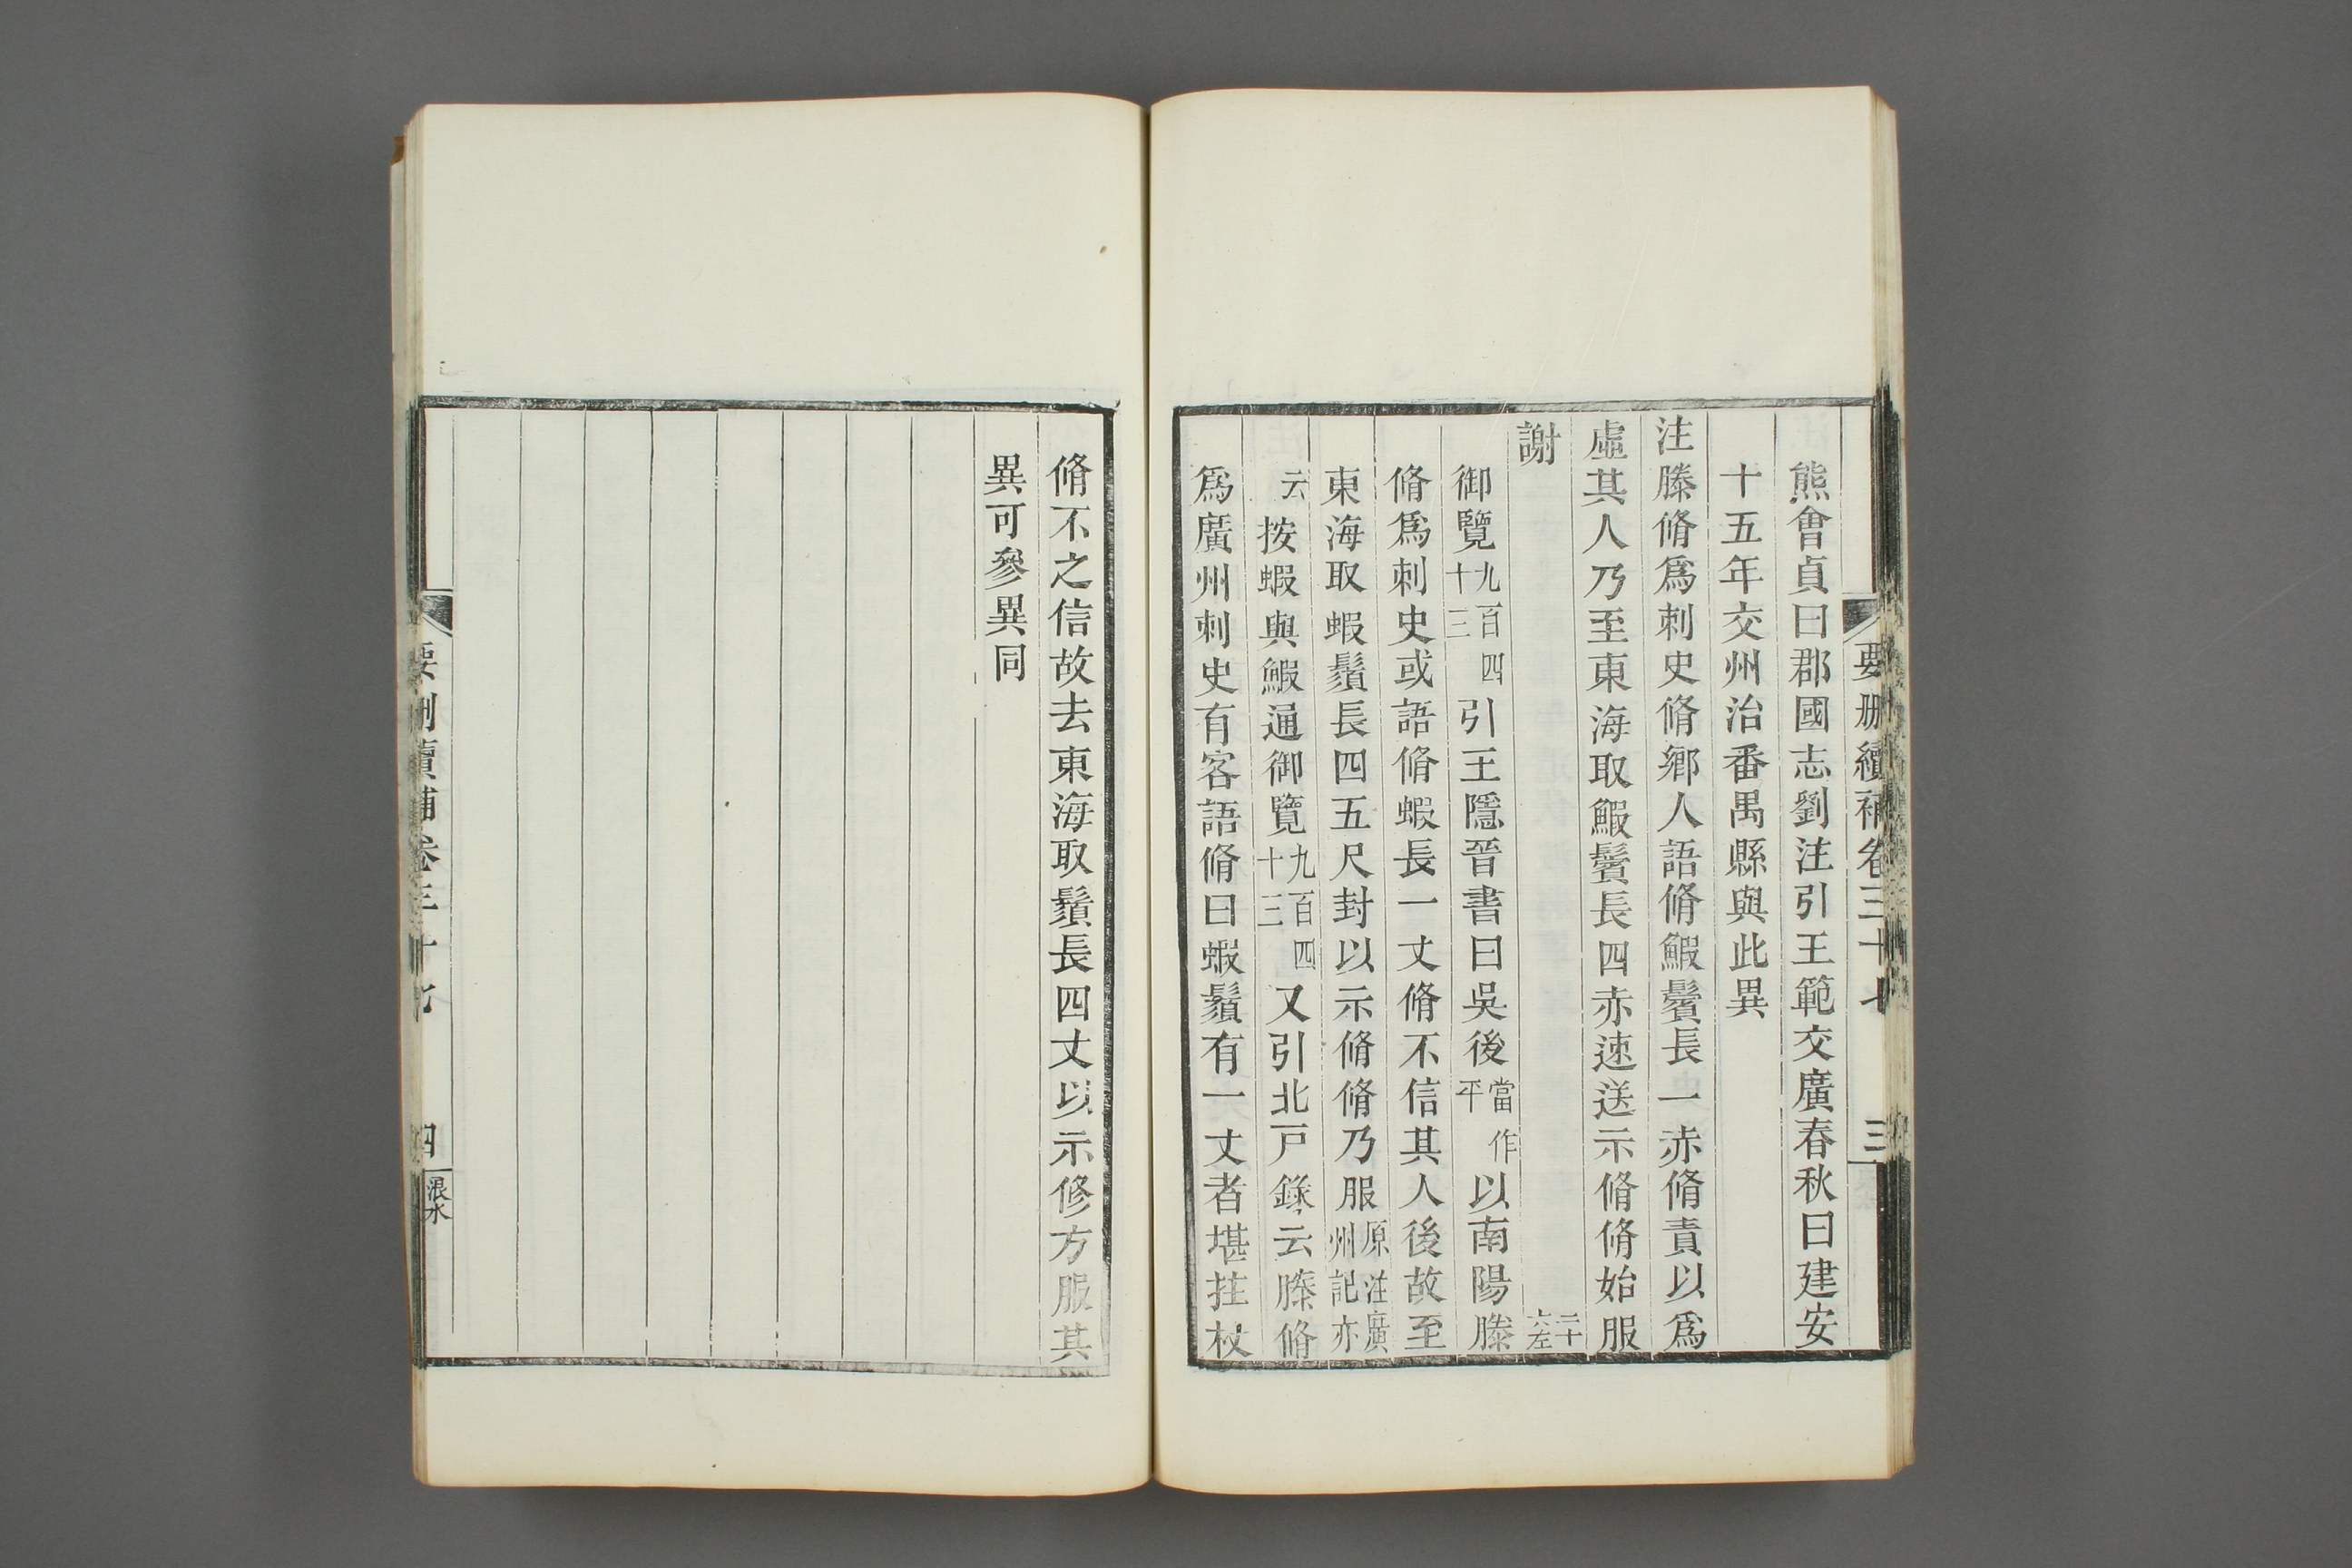 要刪續補卷三十七 三
熊會貞曰郡國志劉注引王範交廣春秋曰建安
十五年交州治番禺縣與此異
注滕脩爲刺史脩鄉人語脩鰕鬚長一赤脩責以爲
虛其人乃至東海取鰕鬚長四赤速送示脩脩始服
謝 二十六左
御覽九百四十三引王隱晉書曰吳後當作平以南陽滕
脩爲刺史或語脩蝦長一丈脩不信其人後故至
東海取蝦鬚長四五尺封以示脩脩乃服原注廣州記亦
云按蝦與鰕通御覽九百四十三又引北戸錄云滕脩
爲廣州刺史有客語脩曰蝦鬚有一丈者堪拄杖
脩不之信故去東海取鬚長四丈以示修方服其
異可參異同
要刪續補卷三十七 四 泿水